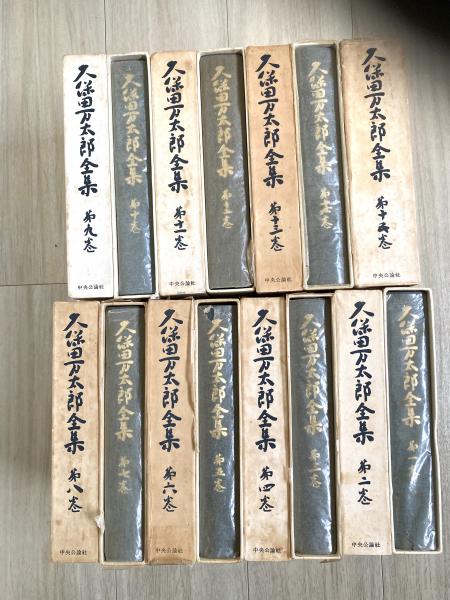 久保田万太郎全集 第九巻 中央公論社
久保田万太郎全集 第十巻
久保田万太郎全集 第十一巻 中央公論社
久保田万太郎全集 第十二巻
久保田万太郎全集 第十三巻 中央公論社
久保田万太郎全集 第十四巻
久保田万太郎全集 第十五巻 中央公論社
久保田万太郎全集 第八巻 中央公論社
久保田万太郎全集 第七巻
久保田万太郎全集 第六巻 中央公論社
久保田万太郎全集 第五巻
久保田万太郎全集 第四巻 中央公論社
久保田万太郎全集 第三巻
久保田万太郎全集 第二巻 中央公論社
久保田万太郎全集 第一